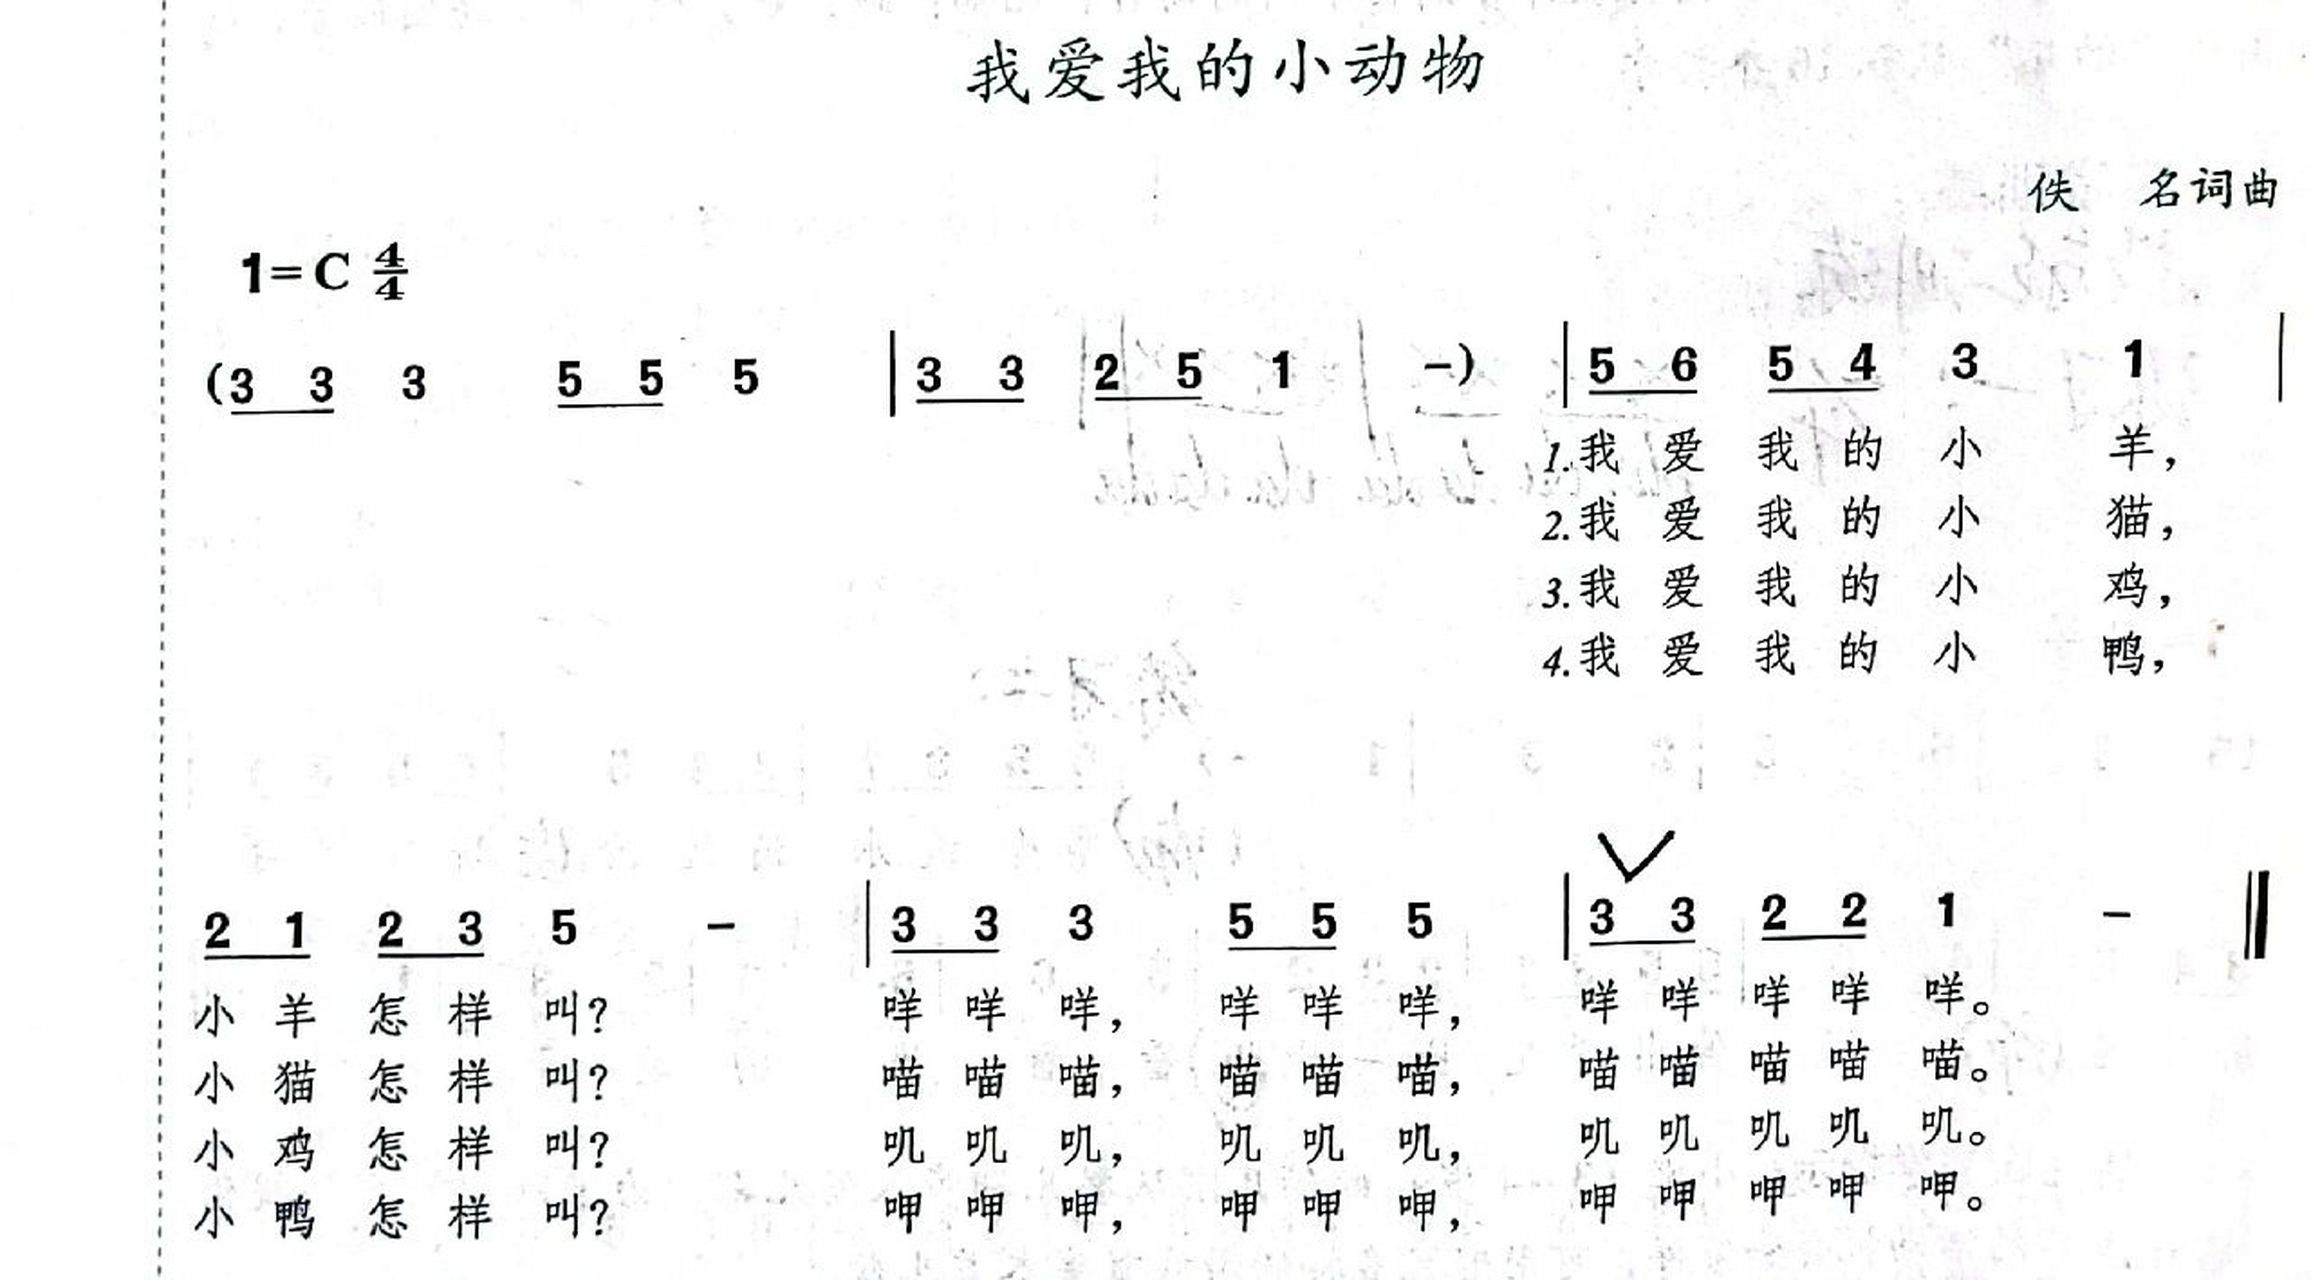 我爱我的小动物
佚 名词曲
1=C 4/4
(3 3 3 5 5 5 | 3 3 2 5 1 -) | 5 6 5 4 3 1 |
1.我 爱 我 的 小 羊,
2.我 爱 我 的 小 猫,
3.我 爱 我 的 小 鸡,
4.我 爱 我 的 小 鸭,
2 1 2 3 5 - | 3 3 3 5 5 5 | 3 3 2 2 1 - ‖
小 羊 怎 样 叫? 咩 咩 咩, 咩 咩 咩, 咩 咩 咩 咩 咩。
小 猫 怎 样 叫? 喵 喵 喵, 喵 喵 喵, 喵 喵 喵 喵 喵。
小 鸡 怎 样 叫? 叽 叽 叽, 叽 叽 叽, 叽 叽 叽 叽 叽。
小 鸭 怎 样 叫? 呷 呷 呷, 呷 呷 呷, 呷 呷 呷 呷 呷。